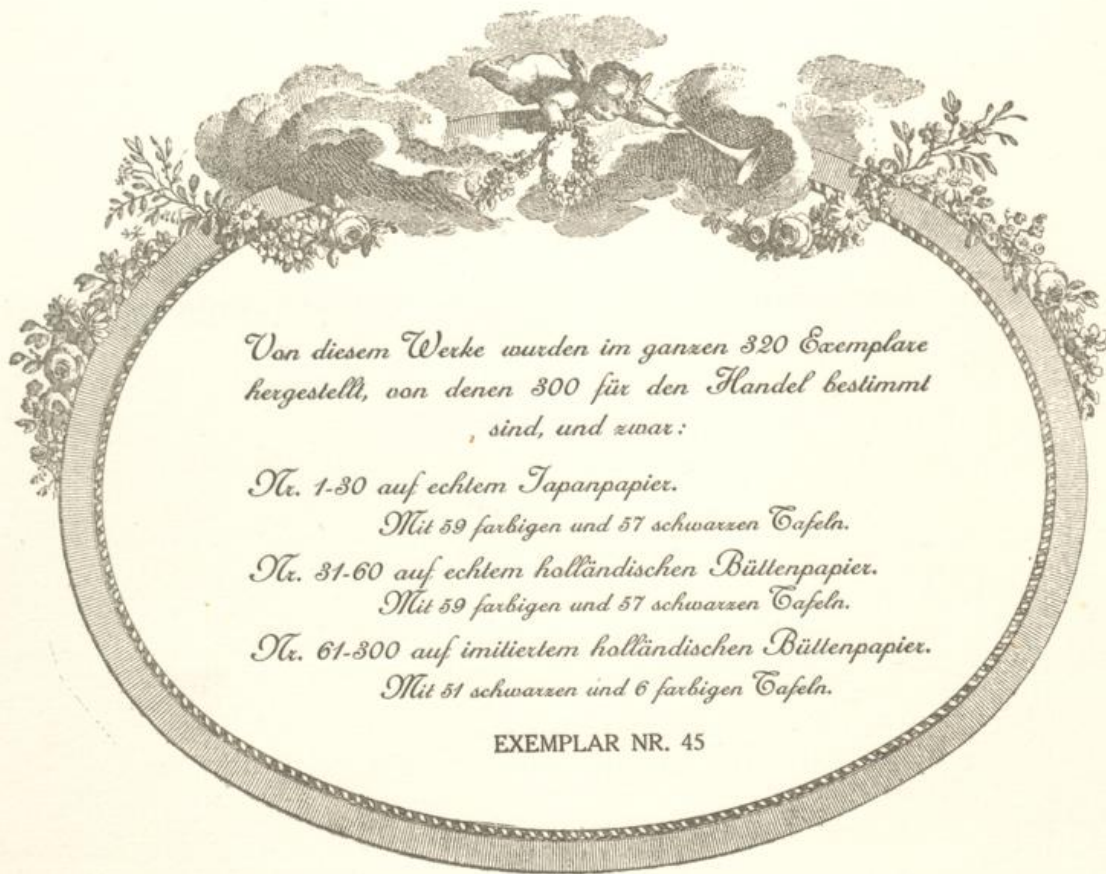 Von diesem Werke wurden im ganzen 320 Exemplare
hergestellt, von denen 300 für den Handel bestimmt
sind, und zwar:
Nr. 1-30 auf echtem Japanpapier.
Mit 59 farbigen und 57 schwarzen Tafeln.
Nr. 31-60 auf echtem holländischen Büttenpapier.
Mit 59 farbigen und 57 schwarzen Tafeln.
Nr. 61-300 auf imitiertem holländischen Büttenpapier.
Mit 51 schwarzen und 6 farbigen Tafeln.
EXEMPLAR NR. 45